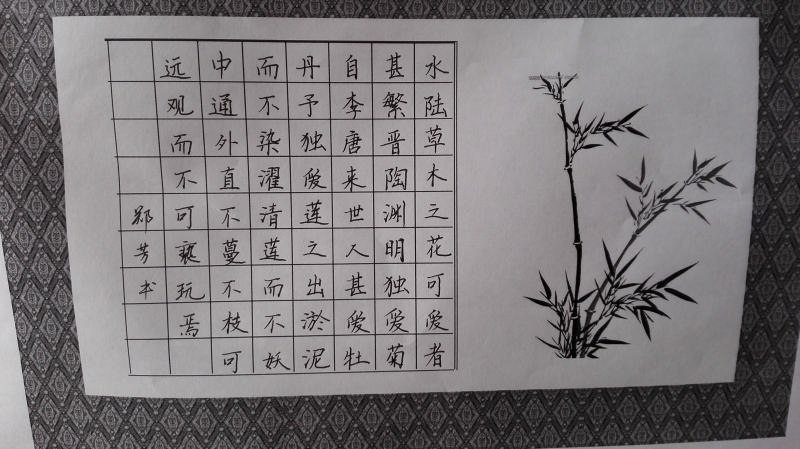 水陆草木之花可爱者
甚繁晋陶渊明独爱菊
自李唐来世人甚爱牡
丹予独爱莲之出淤泥
而不染濯清莲而不妖
中通外直不蔓不枝可
远观而不可亵玩焉
郑芳书